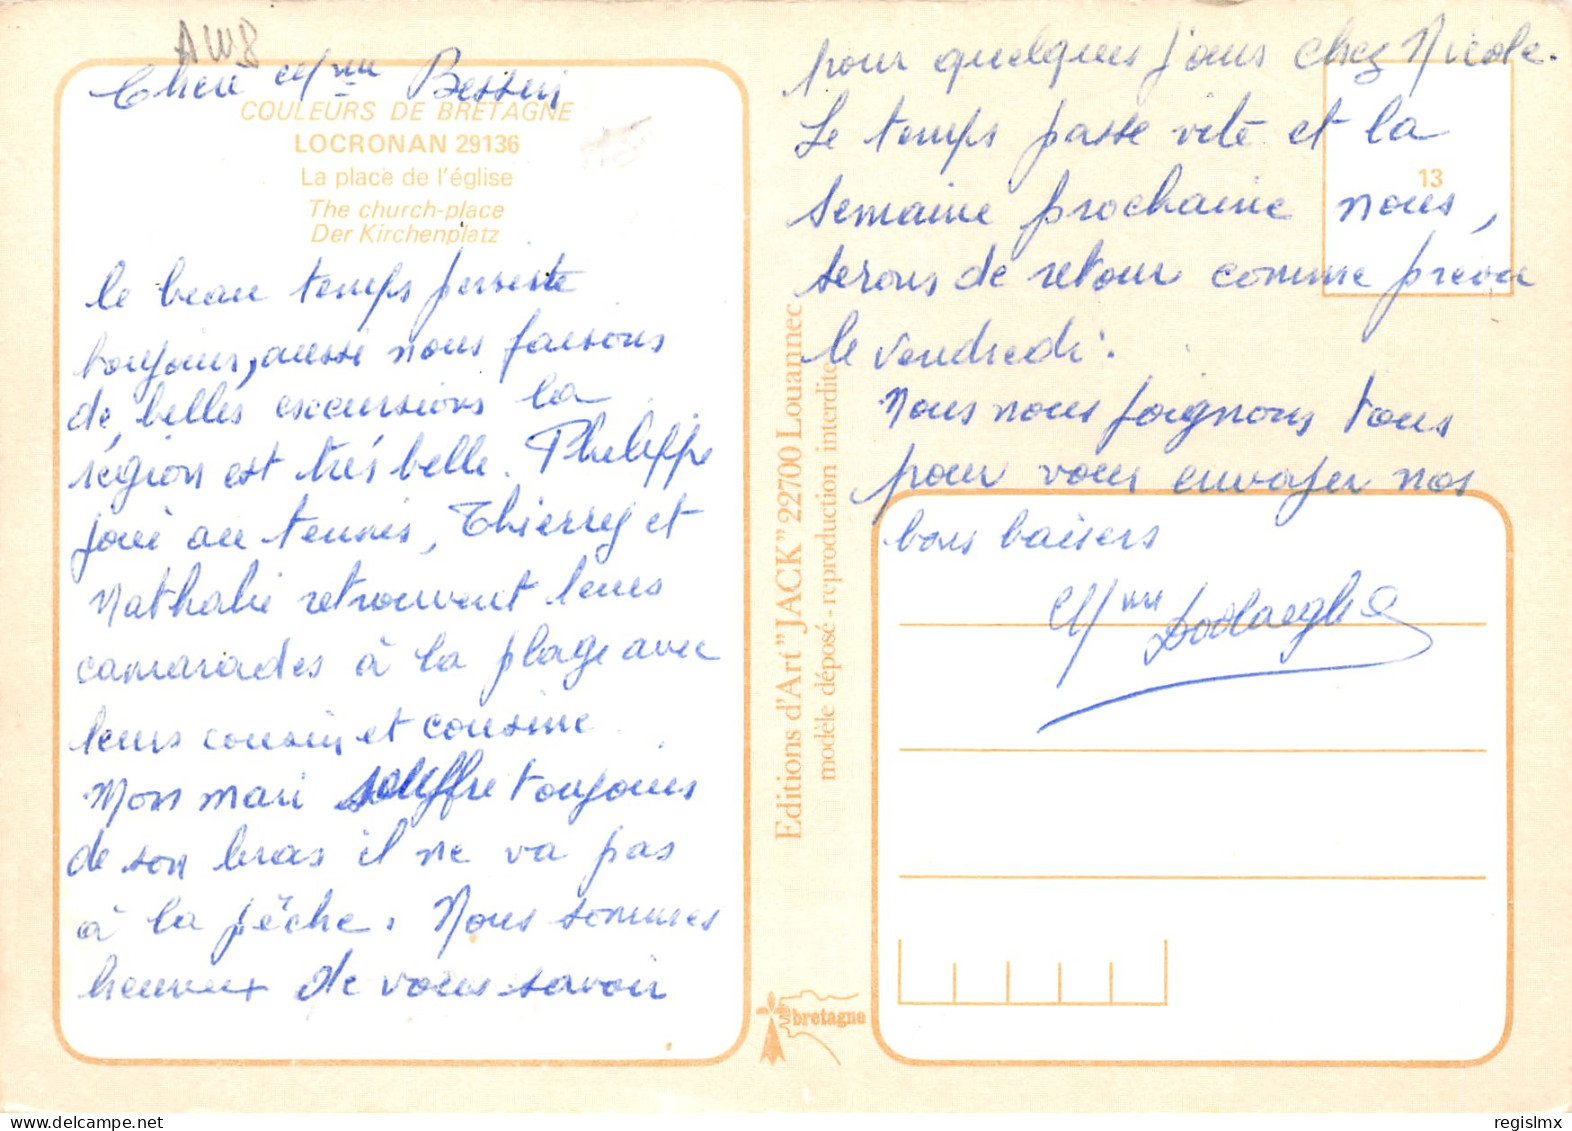 AW8
Chère Mme Bessin
COULEURS DE BRETAGNE
LOCRONAN 29136
La place de l'église
The church-place
Der Kirchenplatz
le beau temps persiste
toujours, aussi nous faisons
de belles excursions la
région est très belle. Philippe
joue au tennis, Thierry et
Nathalie retrouvent leurs
camarades à la plage avec
leurs cousin et cousine
Mon mari souffre toujours
de son bras il ne va pas
à la pêche. Nous sommes
heureux de vous savoir
pour quelques jours chez Nicole.
Le temps passe vite et la
semaine prochaine nous,
serons de retour comme prévu
le vendredi.
Nous nous joignons tous
pour vous envoyer nos
bons baisers
Mme
13
Editions d'Art "JACK" 22700 Louannec
modèle déposé - reproduction interdite
bretagne
regislmx